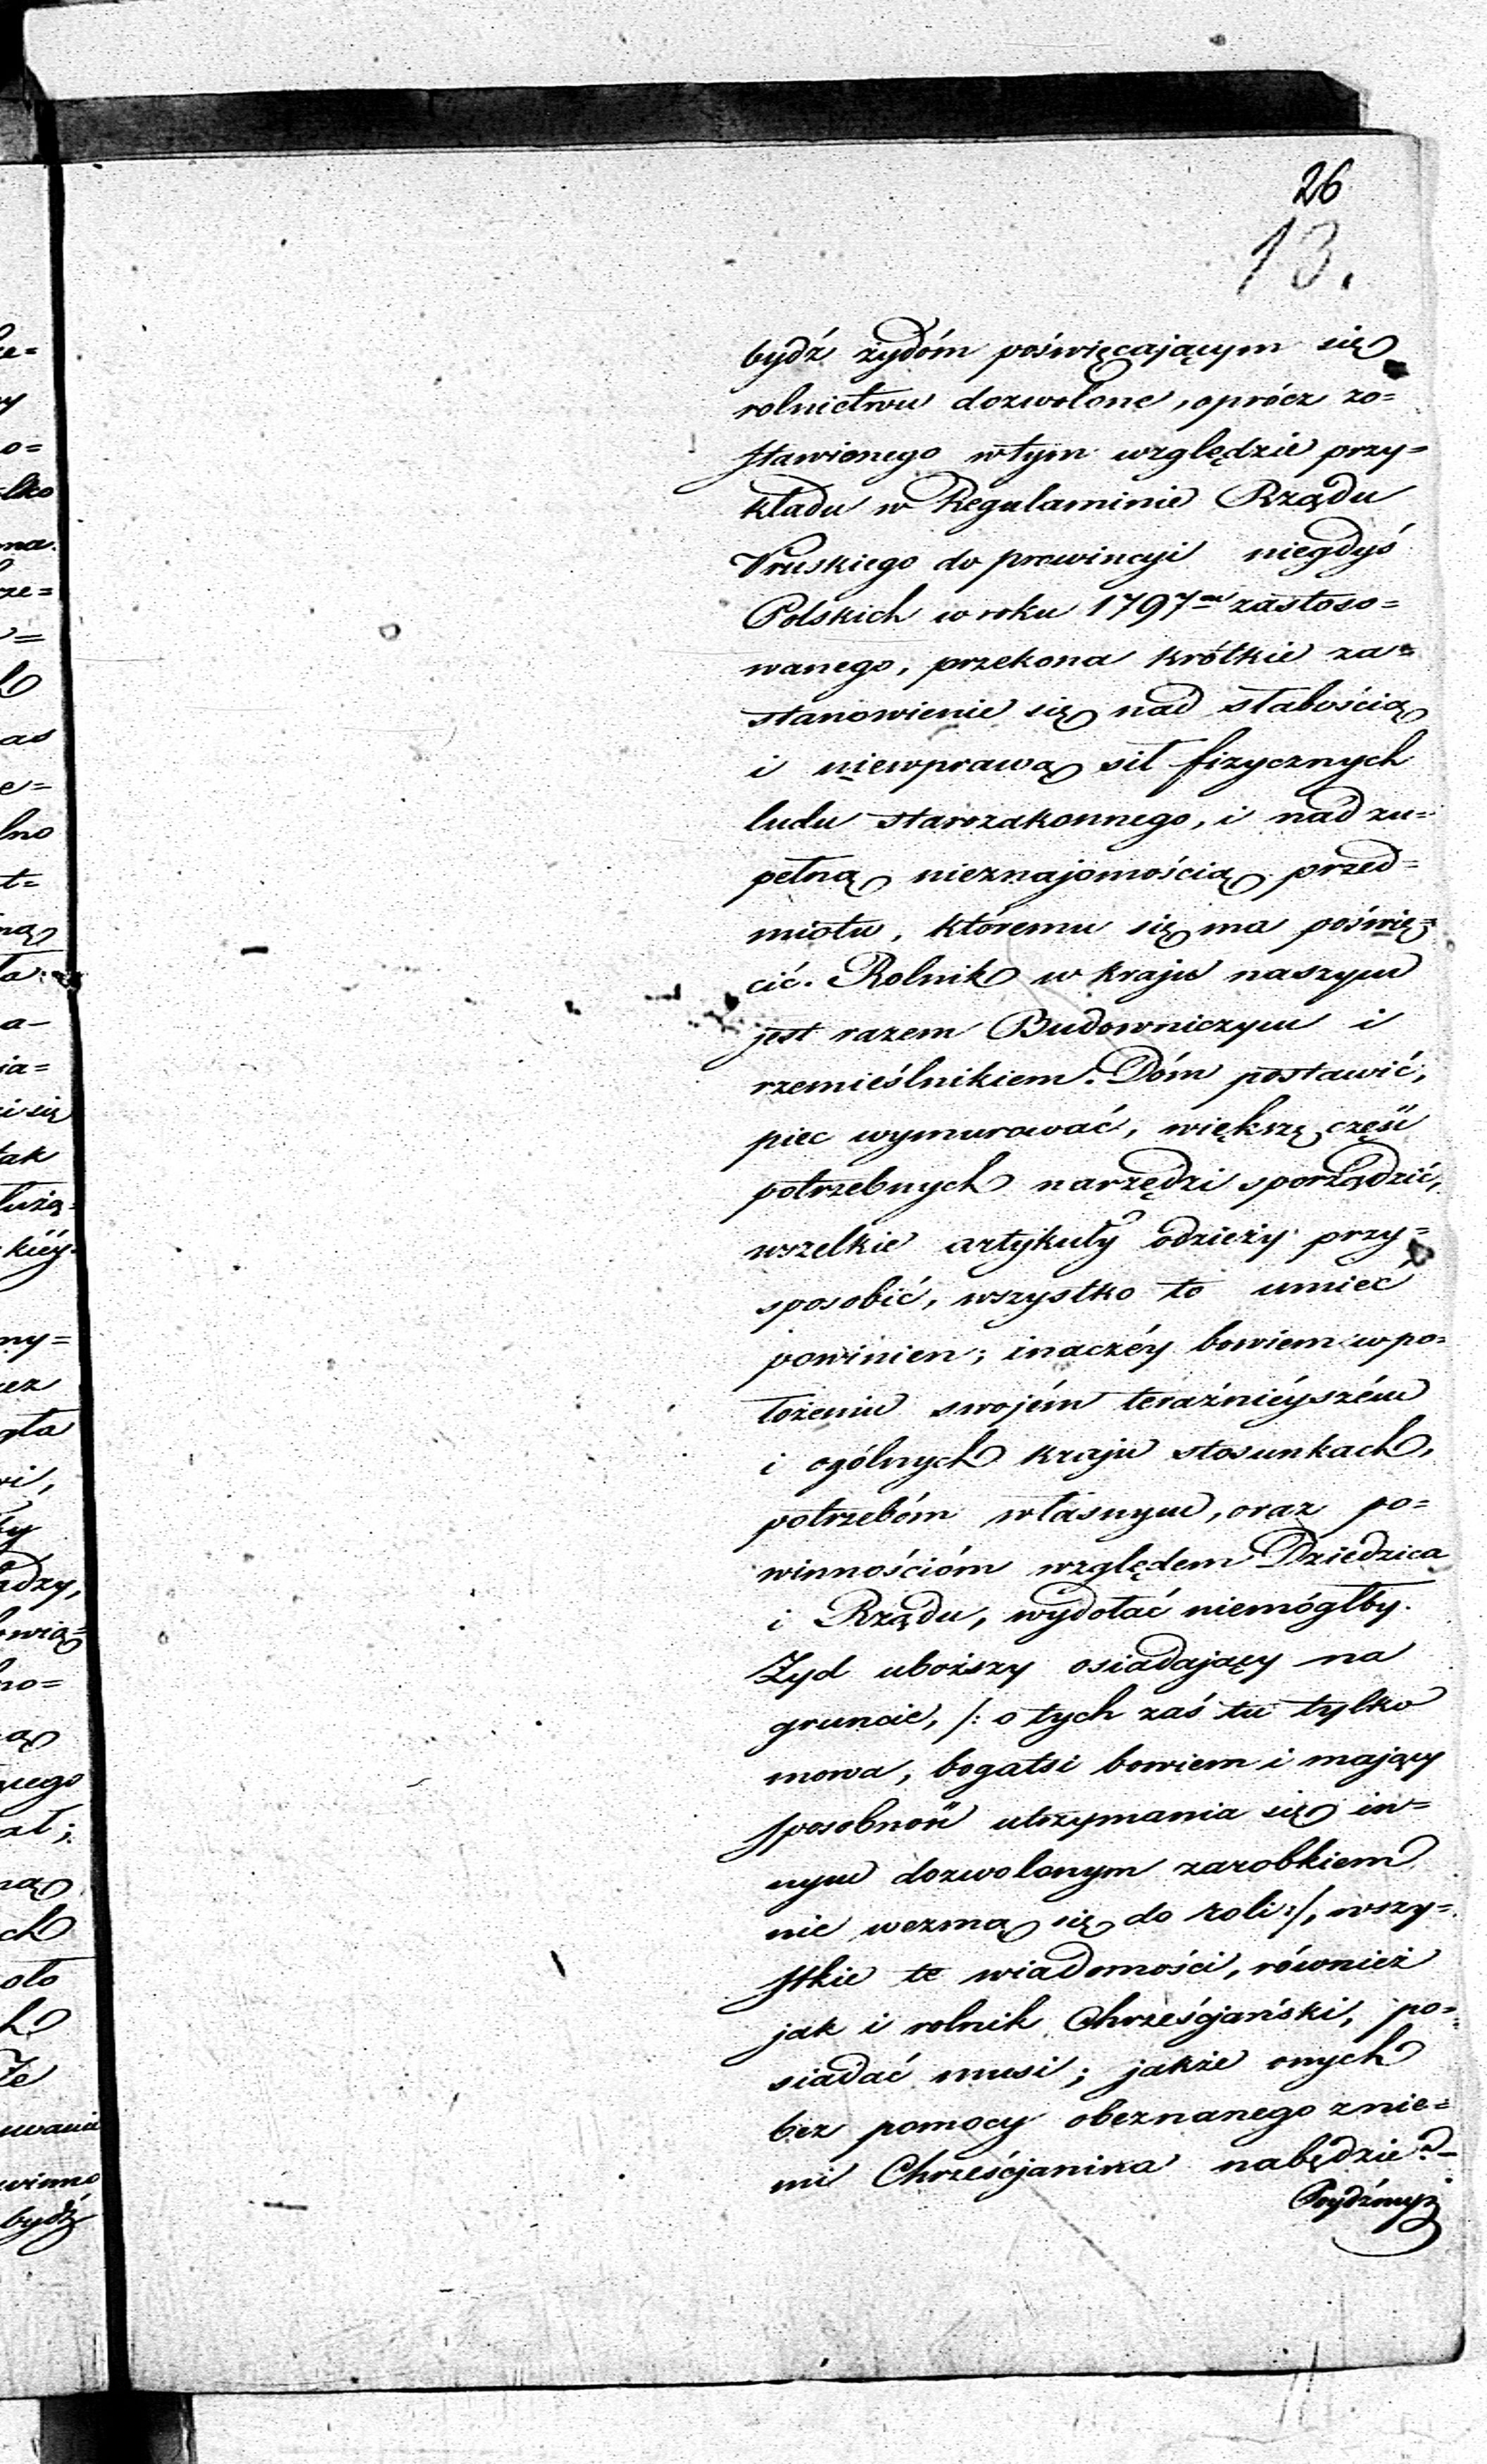 26
13.
bydź żydóm poświęcającym się
rolnictwu dozwolone, oprócz zo=
stawionego w tym względzie przy=
kładu w Regulaminie Rządu
Pruskiego do prowincyi niegdyś
Polskich w roku 1797 zastoso=
wanego, przekona krótkie za=
stanowienie się nad słabością
i niewprawą sił fizycznych
ludu starozakonnego, i nad zu=
pełną nieznajomością przed=
miotu, któremu się ma poświę=
cić. Rolnik w kraju naszym
jest razem Budowniczym i
rzemieślnikiem. Dóm postawić,
piec wymurować, większę część
potrzebnych narzędzi sporządzić,
wszelkie artykuły odzieży przy=
sposobić, wszystko to umieć
powinien; inaczéy bowiem w po=
łożeniu swojém teraźniéyszém
i ogólnych kraju stosunkach,
potrzebóm własnym, oraz po=
winnościóm względem Dziedzica
i Rządu, wydołać niemógłby.
Żyd uboższy osiadający na
gruncie, /: o tych zaś tu tylko
mowa, bogatsi bowiem i mający
sposobność utrzymania się in=
nym dozwolonym zarobkiem
nie wezmą się do roli :/, wszy=
stkie te wiadomości, również
jak i rolnik Chrześcjański, po=
siadać musi; jakże onych
bez pomocy obeznanego z nie=
mi Chrześcjanina nabędzie? –
Pòydźmyż
lko
as
lno
tak
ch
winno
bydź